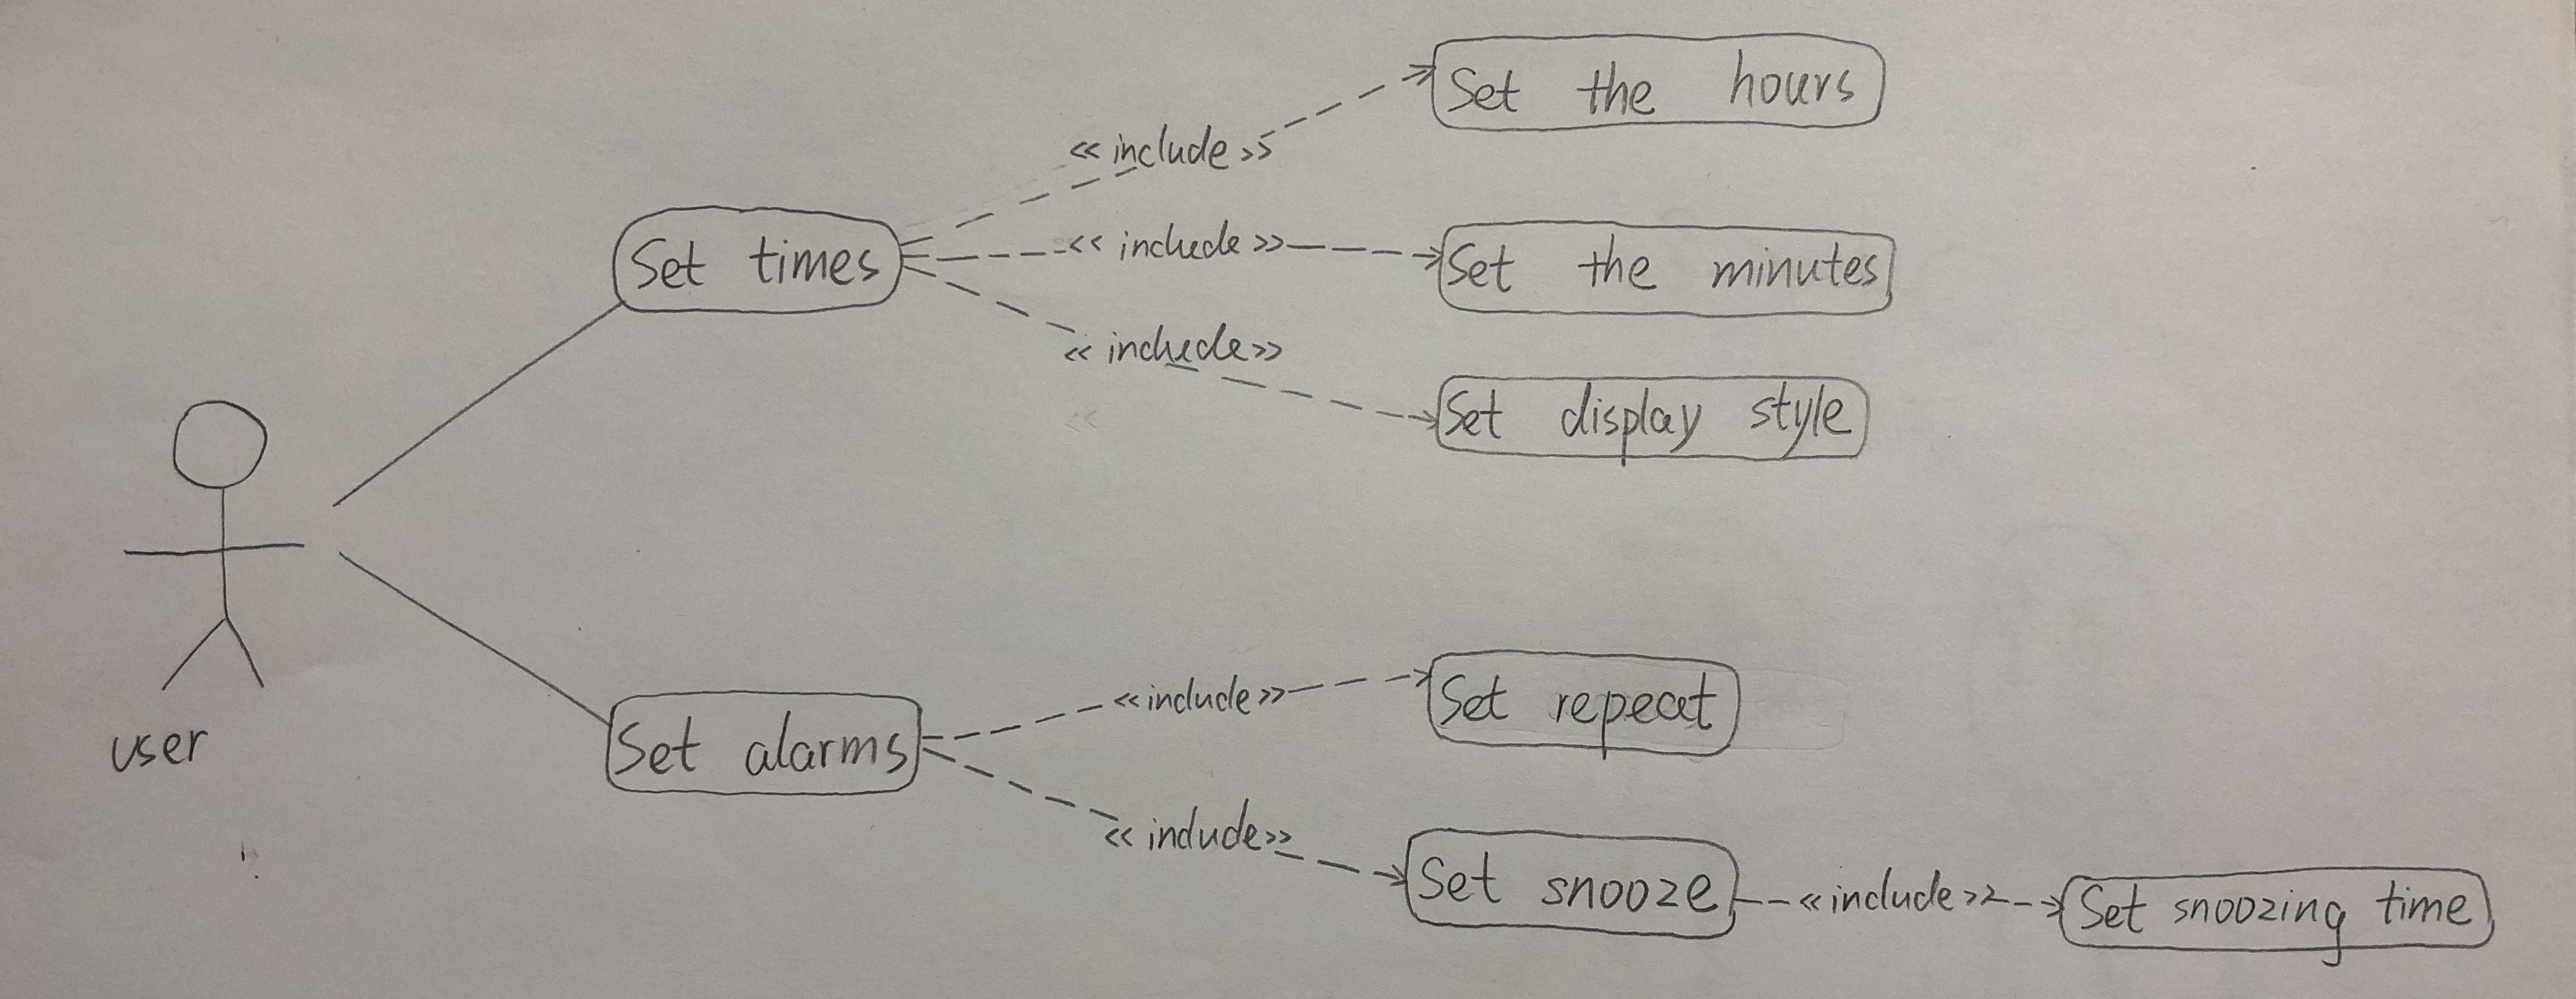 Set the hours
<< include >>
Set times
<< include >>
Set the minutes
<< include >>
Set display style
<<
user
Set alarms
<< include >>
Set repeat
<< include >>
Set snooze
<< include >>
Set snoozing time